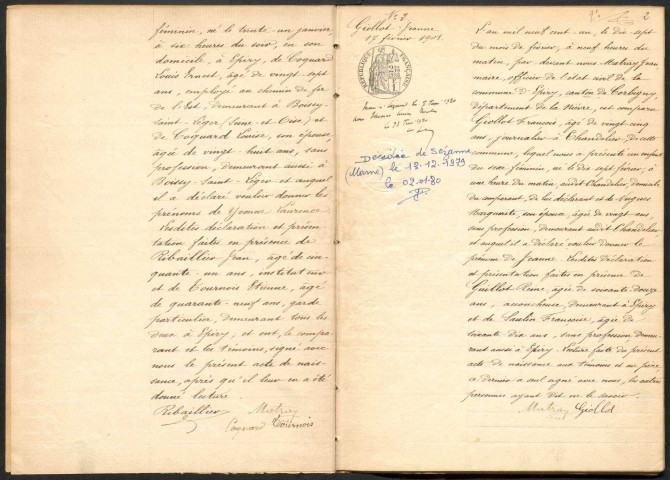 féminin, né le trente-un janvier
à six heures du soir, en son
domicile, à Epiry, de Coquard
Louis Ernest, âgé de vingt-sept
ans, employé au chemin de fer
de l'Est, demeurant à Boissy-
Saint-Léger (Seine et Oise) et
de Coquard Louise, son épouse,
âgée de vingt huit ans, sans
profession, demeurant aussi à
Boissy-Saint-Léger et auquel
il a déclaré vouloir donner les
prénoms de Yvonne Laurence
Lesdites déclaration et présen-
tation faites en présence de
Ribaillier Jean, âgé de cin-
quante-un ans, instituteur
et de Tournois Etienne, âgé
de quarante-neuf ans, garde
particulier, demeurant tous les
deux à Epiry; et ont, le compa-
rant et les témoins, signé avec
nous le présent acte de nais-
sance, après qu'il leur en a été
donné lecture.
Ribaillier Matray
Coquard Tournois
N° 2
Giollot Jeanne
17 février 1901.
REPUBLIQUE FRANÇAISE
Décédée de Sézanne
(Marne) le 13.12.1979
le 02.01.80
2
L'an mil neuf cent-un, le dix sept
du mois de février, à neuf heures du
matin, par devant nous Matray
maire, officier de l'état civil de la
commune d'Epiry, canton de Corbigny
département de la Nièvre, est comparu
Giollot François, âgé de vingt-cinq
ans, journalier à Chandelier, de cette
commune, lequel nous a présenté un enfant
du sexe féminin, né le dix sept février, à
une heure du matin, audit Chandelier, domicile
du comparant, de lui déclarant et de
Marguerite, son épouse, âgée de vingt-ans
sans profession, demeurant audit Chandelier
et auquel il a déclaré vouloir donner le
prénom de Jeanne. Lesdites déclaration
et présentation faites en présence de
Guillot Reine, âgée de soixante douze
ans, accoucheuse, demeurant à Epiry
et de Saulin Françoise, âgée de
soixante dix ans, sans profession, demeu-
rant aussi à Epiry. Lecture faite du présent
acte de naissance aux témoins et au père,
ce dernier a seul signé avec nous, les autres
personnes ayant dit ne le savoir.
Matray Giollot